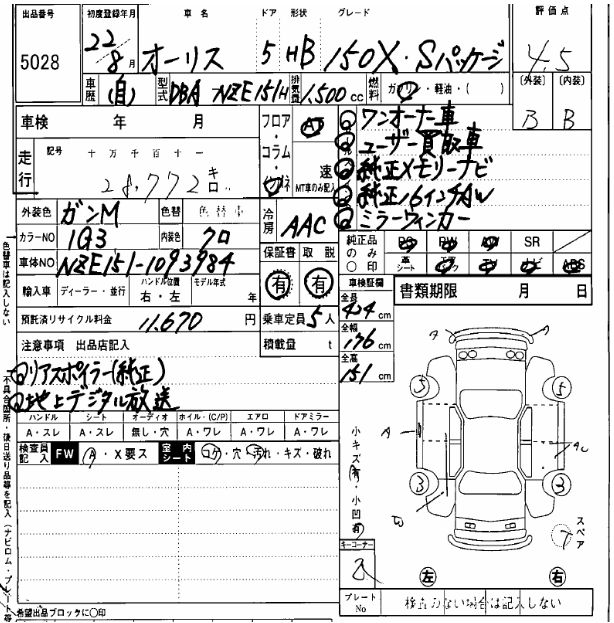 出品番号 初度登録年月 車名 ドア 形状 グレード 評価点
5028 22年 8月 オーリス 5 HB 150X・Sパッケージ 4.5
車歴 (自) 型式 DBA NZE151H 排気量 1,500cc 燃料 ガソリン・軽油・( ) 〔外装〕 〔内装〕
B B
車検 年 月 フロア・コラム・インパネ AT 速 MT車のみ記入
走行 記号 十万千百十一
28,772キロ
ワンオーナー車
ユーザー買取車
純正メモリーナビ
純正16インチAW
ミラーウィンカー
外装色 ガンM 色替 色替車 冷房 AAC
カラーNO 1G3 内装色 クロ
車体NO NZE151-1093984
保証書 取説
有 有
純正品のみ〇印 PS PW AW SR
革シート エアバック TV ナビ ABS
輸入車 ディーラー・並行 ハンドル位置 右・左 モデル年式 年
車検証欄 書類期限 月 日
預託済リサイクル料金 11,670円 乗車定員 5人
積載量 t
全長 424cm
全幅 176cm
全高 151cm
注意事項 出品店記入
リアスポイラー(純正)
地上デジタル放送
ハンドル シート オーディオ ホイル・(C/P) エアロ ドアミラー
A・スレ A・スレ 無し・穴 A・ワレ A・ワレ A・ワレ
検査員記入 FW A・X要ス 室内シート コゲ・穴・汚れ・キズ・破れ
小キズ有・小凹有
A A
5 5
A
3 3
スペア
キーコーナー
左 右
プレートNo 検査のない場合は記入しない
希望出品ブロックに〇印
色替車は記入しない